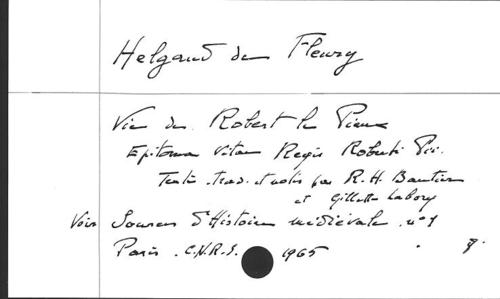 Helgaud de Fleury
Vie de Robert le Pieux
Epitoma Vitae Regis Roberti Pii.
Texte, trad. et notes par R.H. Bautier
et Gillette Labory
Voir Sources d'Histoire médiévale n° 1
Paris. C.N.R.S. 1965